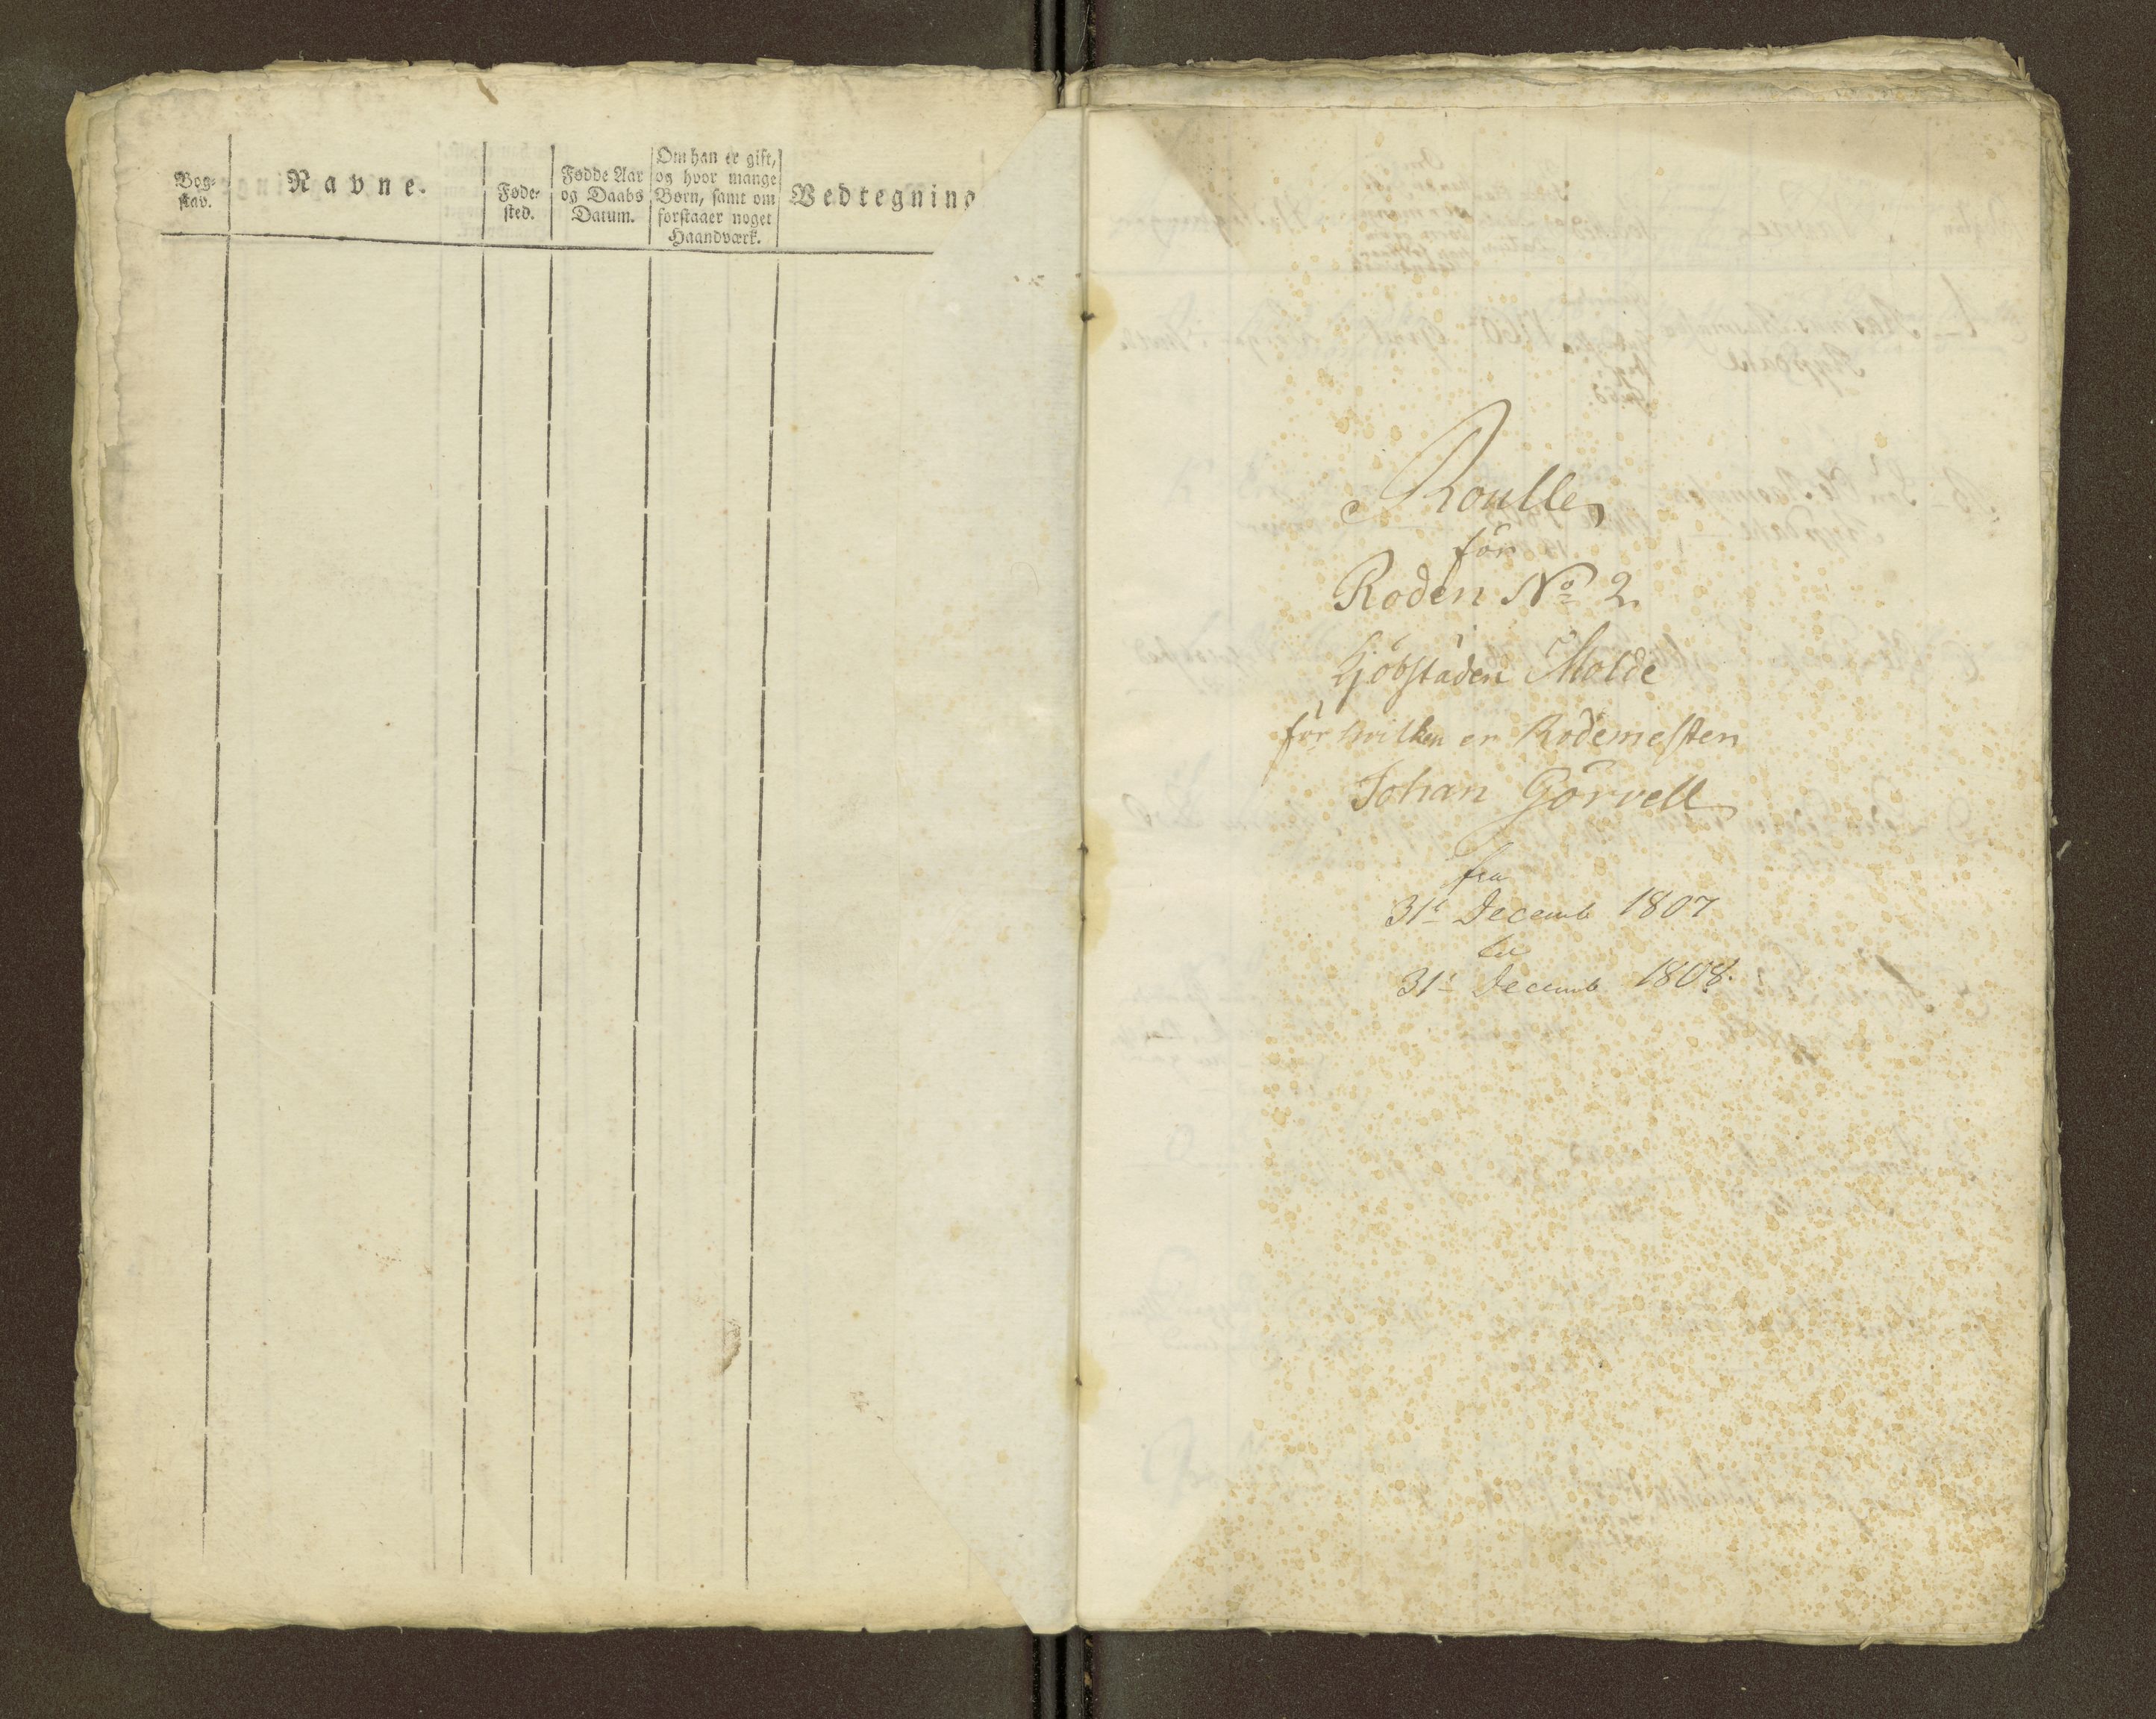 Bog-
stav.
Navne.
Føde-
sted.
Fødde Aar
og Daabs
Datum.
Om han er gift,
og hvor mange
Børn, samt om
forstaaer noget
Haandværk.
Vedtegning
Roulle
for
Roden No 2
Kjöbstaden Molde
for hvilken er Rodemesten
Johan Görvell
fra
31t Decemb 1807
til
31t Decemb 1808.